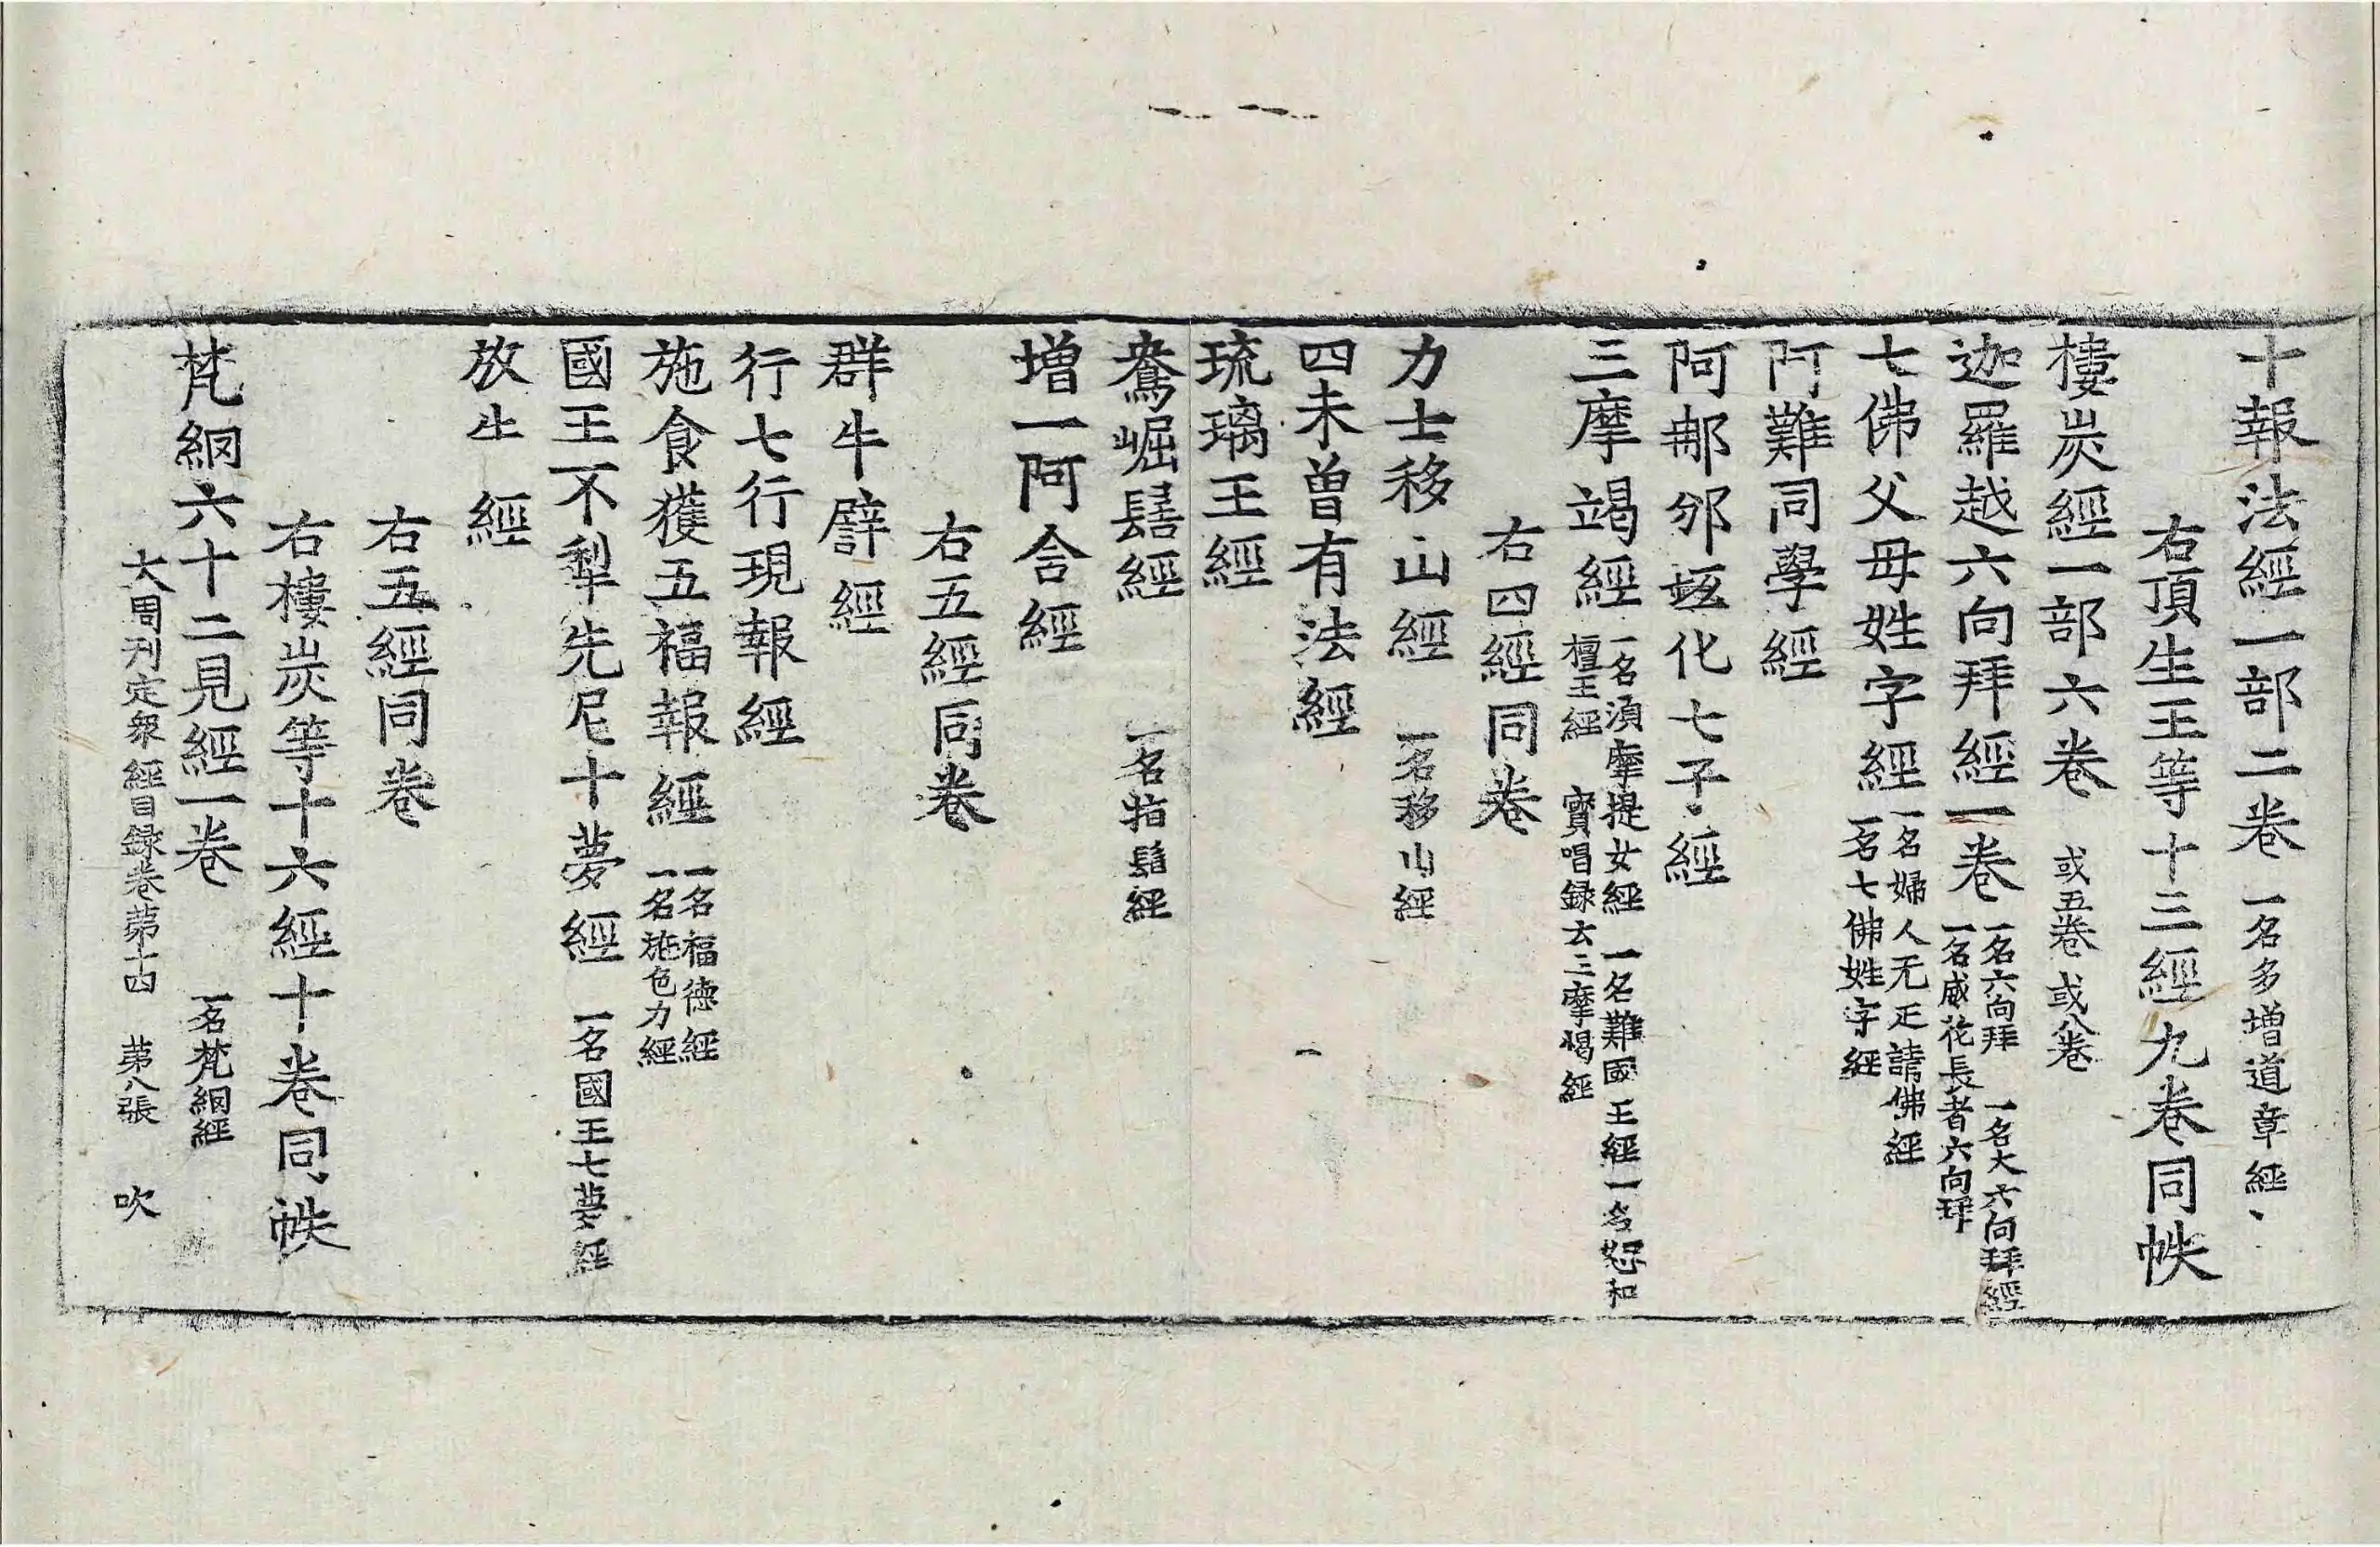 十報法經一部二卷 一名多增道章經
右頂生王等十三經九卷同帙
樓炭經一部六卷 或五卷或八卷
迦羅越六向拜經一卷 一名六向拜 一名大六向拜經 一名威花長者六向拜
七佛父母姓字經 一名婦人无延請佛經 一名七佛姓字經
阿難同學經
阿那邠坻化七子經
三摩竭經 一名湏摩提女經 一名難國王經 一名恕和檀王經 寶唱録云三摩竭經
右四經同卷
力士移山經 一名移山經
四未曾有法經
琉璃王經
鴦崛髻經 一名指髻經
增一阿含經
右五經同卷
群牛譬經
行七行現報經
施食獲五福報經 一名福德經 一名施色力經
國王不犁先尼十夢經 一名國王七夢經
放牛經
右五經同卷
右樓炭等十六經十卷同帙
梵網六十二見經一卷 一名梵網經
大周刊定衆經目録卷苐十四 苐八張 吹